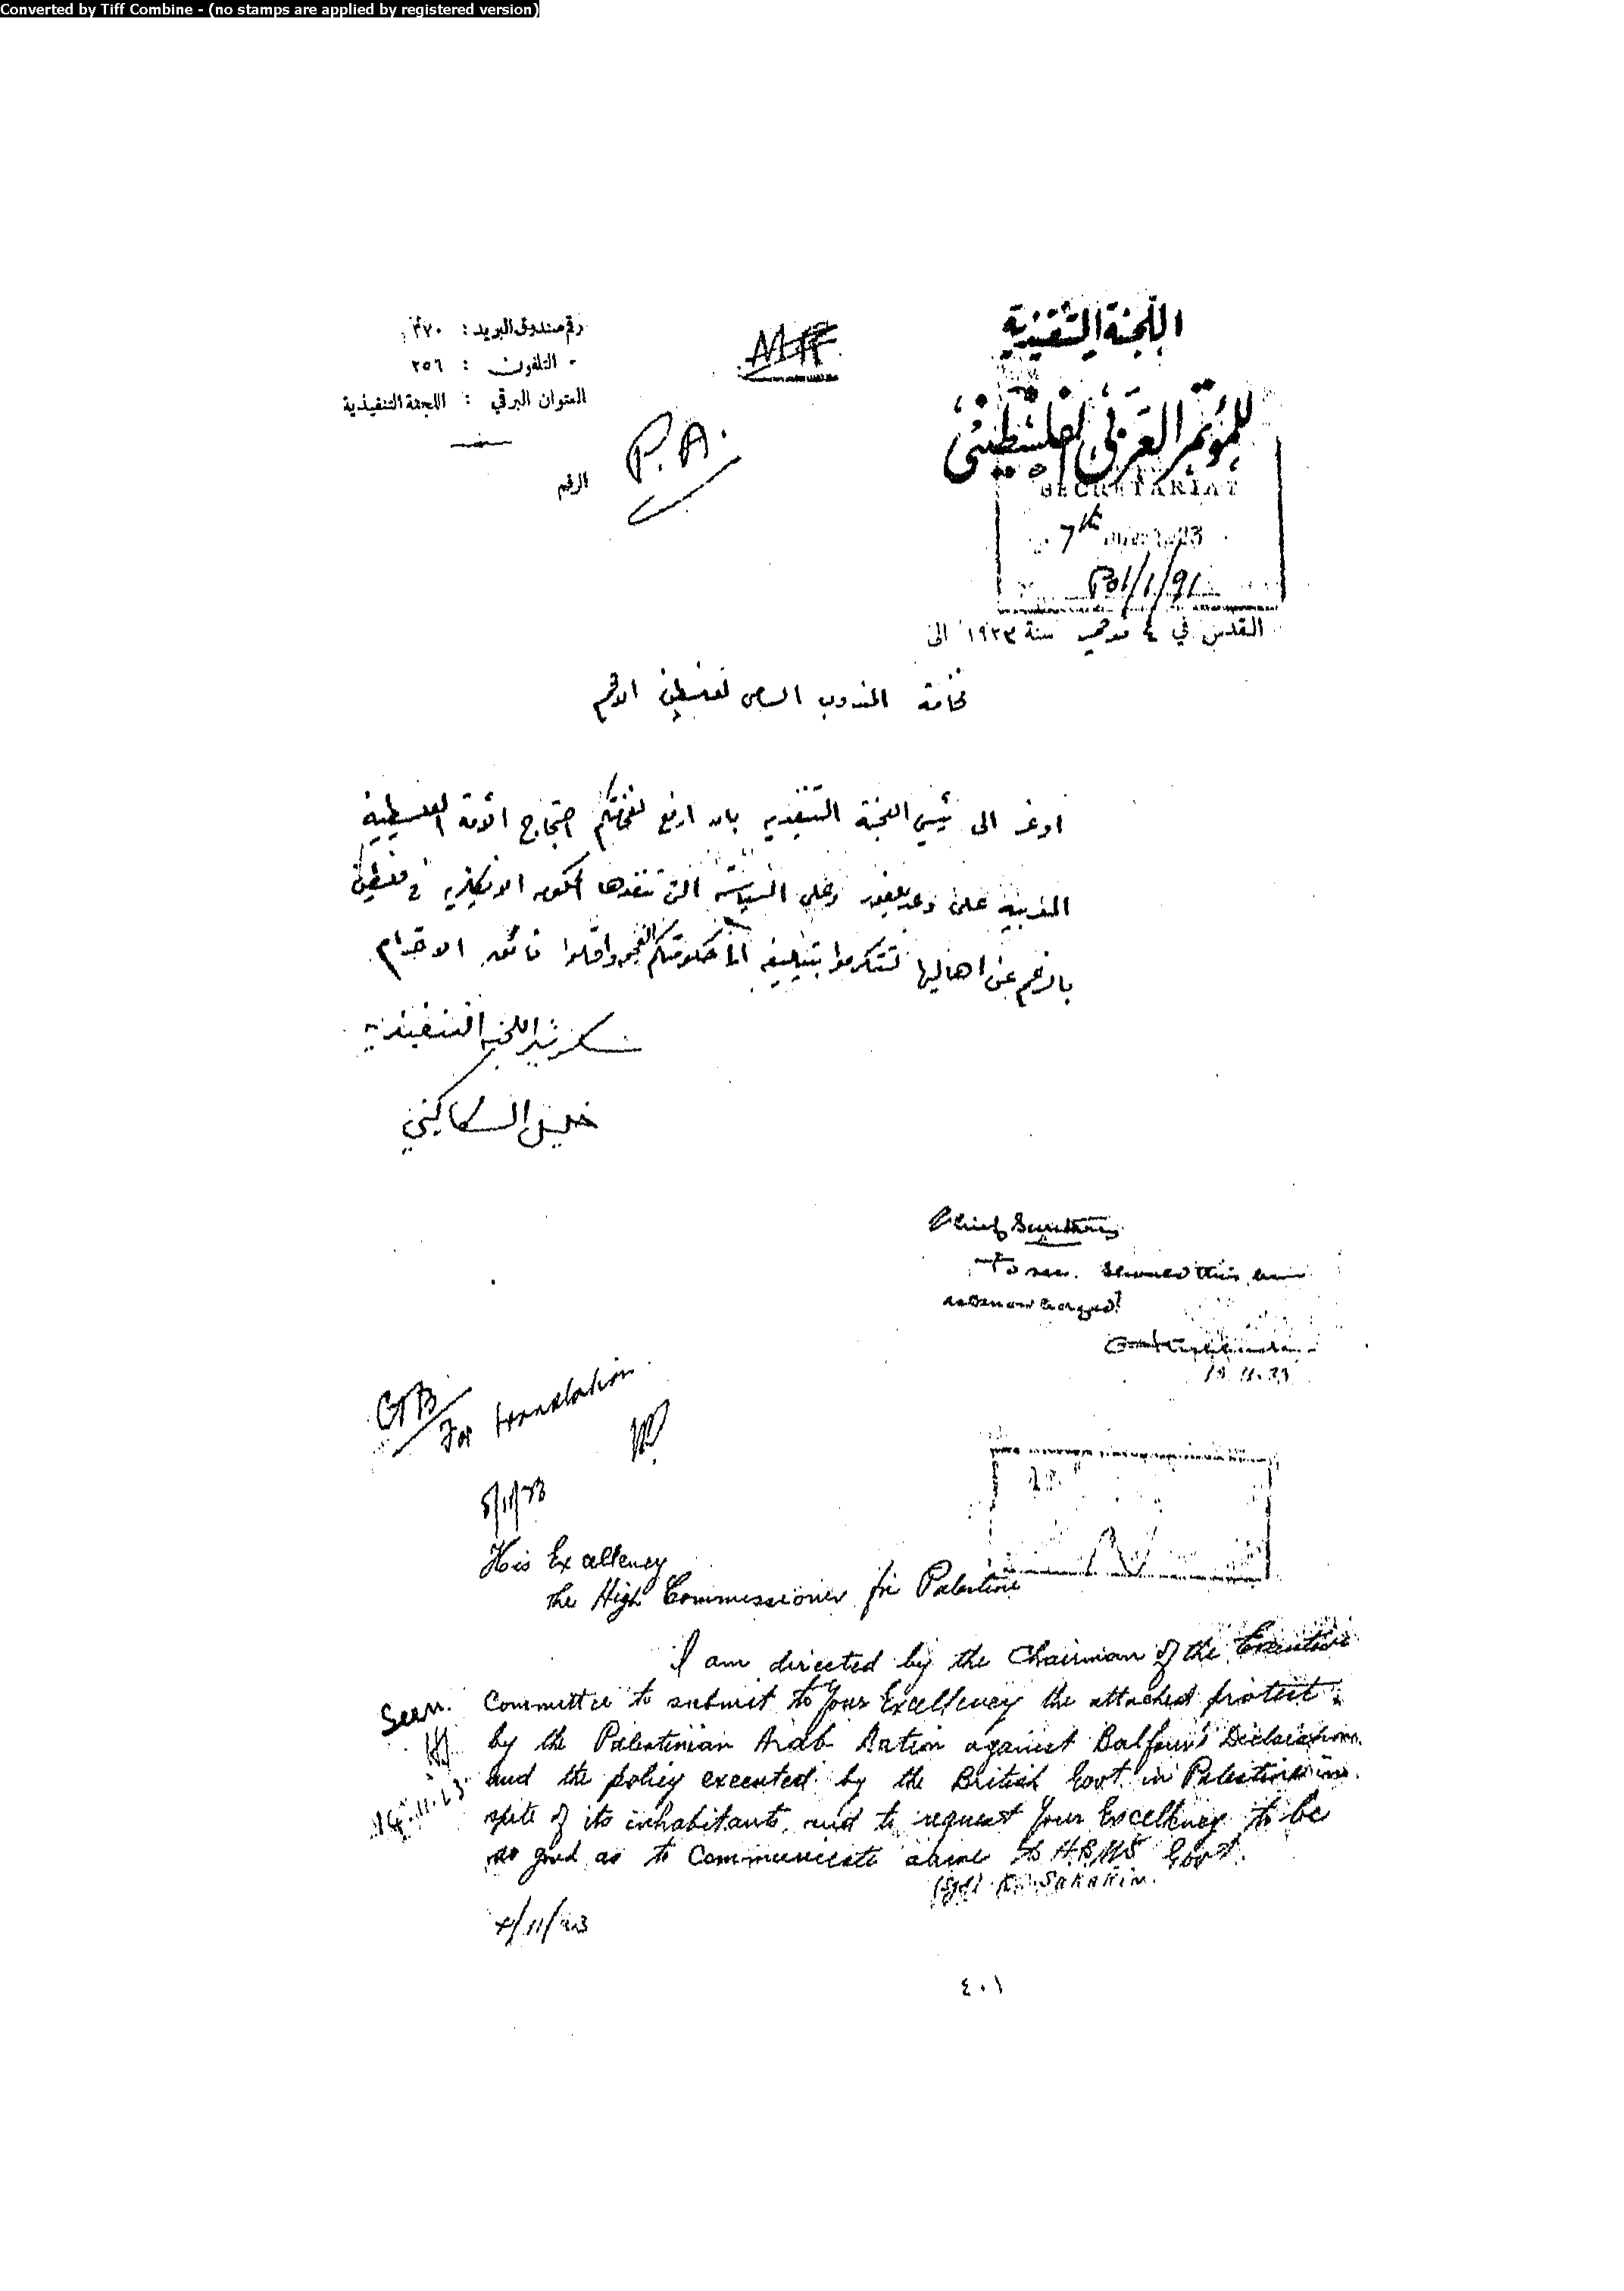 Converted by Tiff Combine - (no stamps are applied by registered version)
اللجنة التنفيذية
للمؤتمر العربي الفلسطيني
رقم صندوق البريد : ٣٧٠
التلفون : ٢٥٦
العنوان البرقي : اللجنة التنفيذية
الرقم
P.A.
SECRETARIAT
7th
القدس في ٤ نوفمبر سنة ١٩٢٣ الى
فخامة المندوب السامي لفلسطين الافخم
اوعز الى رئيس اللجنة التنفيذية بان ارفع لفخامتكم احتجاج الأمة الفلسطينية
العربية على وعد بلفور وعلى السياسة التي تنفذها الحكومة الانكليزية في فلسطين
بالرغم عن اهاليها لتتكرموا بتبليغه الى حكومتكم واقبلوا فائق الاحترام
سكرتير اللجنة التنفيذية
خليل السكاكيني
Chief Secretary
To see. Should this be
acknowledged?
GB
For translation
5/11/23
His Excellency
the High Commissioner for Palestine
I am directed by the Chairman of the Executive
Seen. Committee to submit to Your Excellency the attached protest
by the Palestinian Arab Nation against Balfour's Declaration
and the policy executed by the British Govt. in Palestine in
spite of its inhabitants, and to request Your Excellency to be
so good as to communicate above to H.B.M'S Govt.
(Sgd) K. Sakakini.
14.11.23
4/11/23
٤٠١